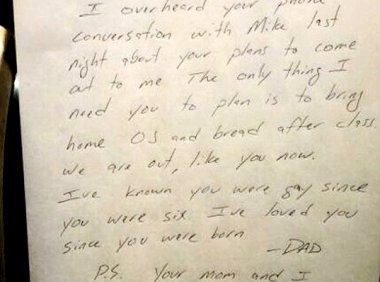 I overheard your phone
conversation with Mike last
night about your plans to come
out to me The only thing I
need you to plan is to bring
home OJ and bread after class.
we are out, like you now.
Ive known you were gay since
you were six Ive loved you
since you were born
-DAD
P.S. Your mom and I